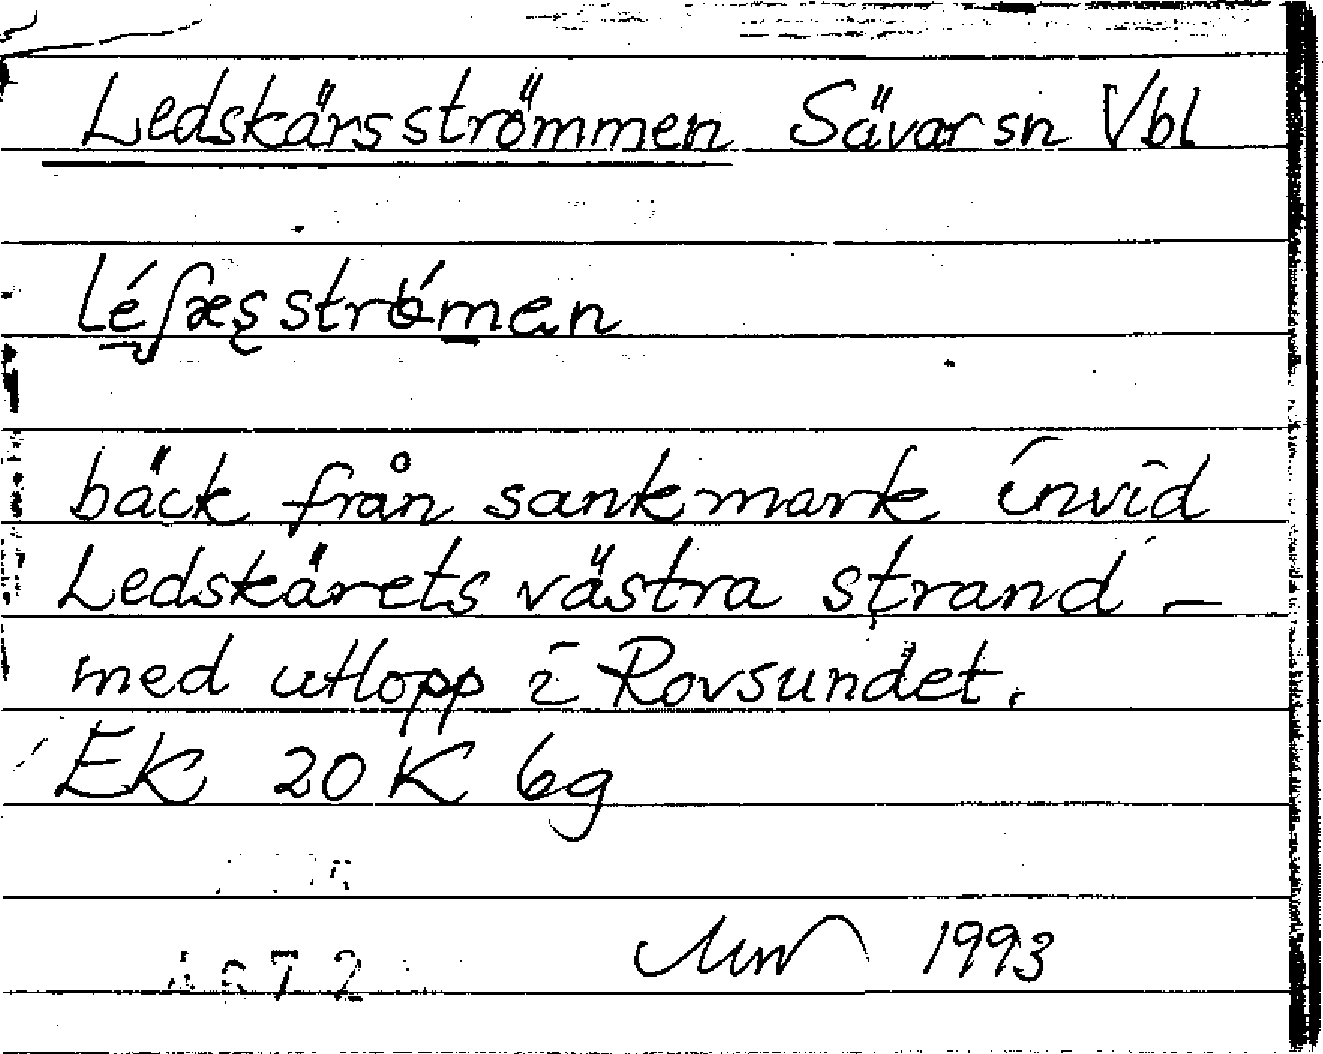 Ledskärsströmmen Sävar sn Vbl
bäck från sankmark invid
Ledskärets västra strand –
med utlopp i Rovsundet.
EK 20 K 6g
1993